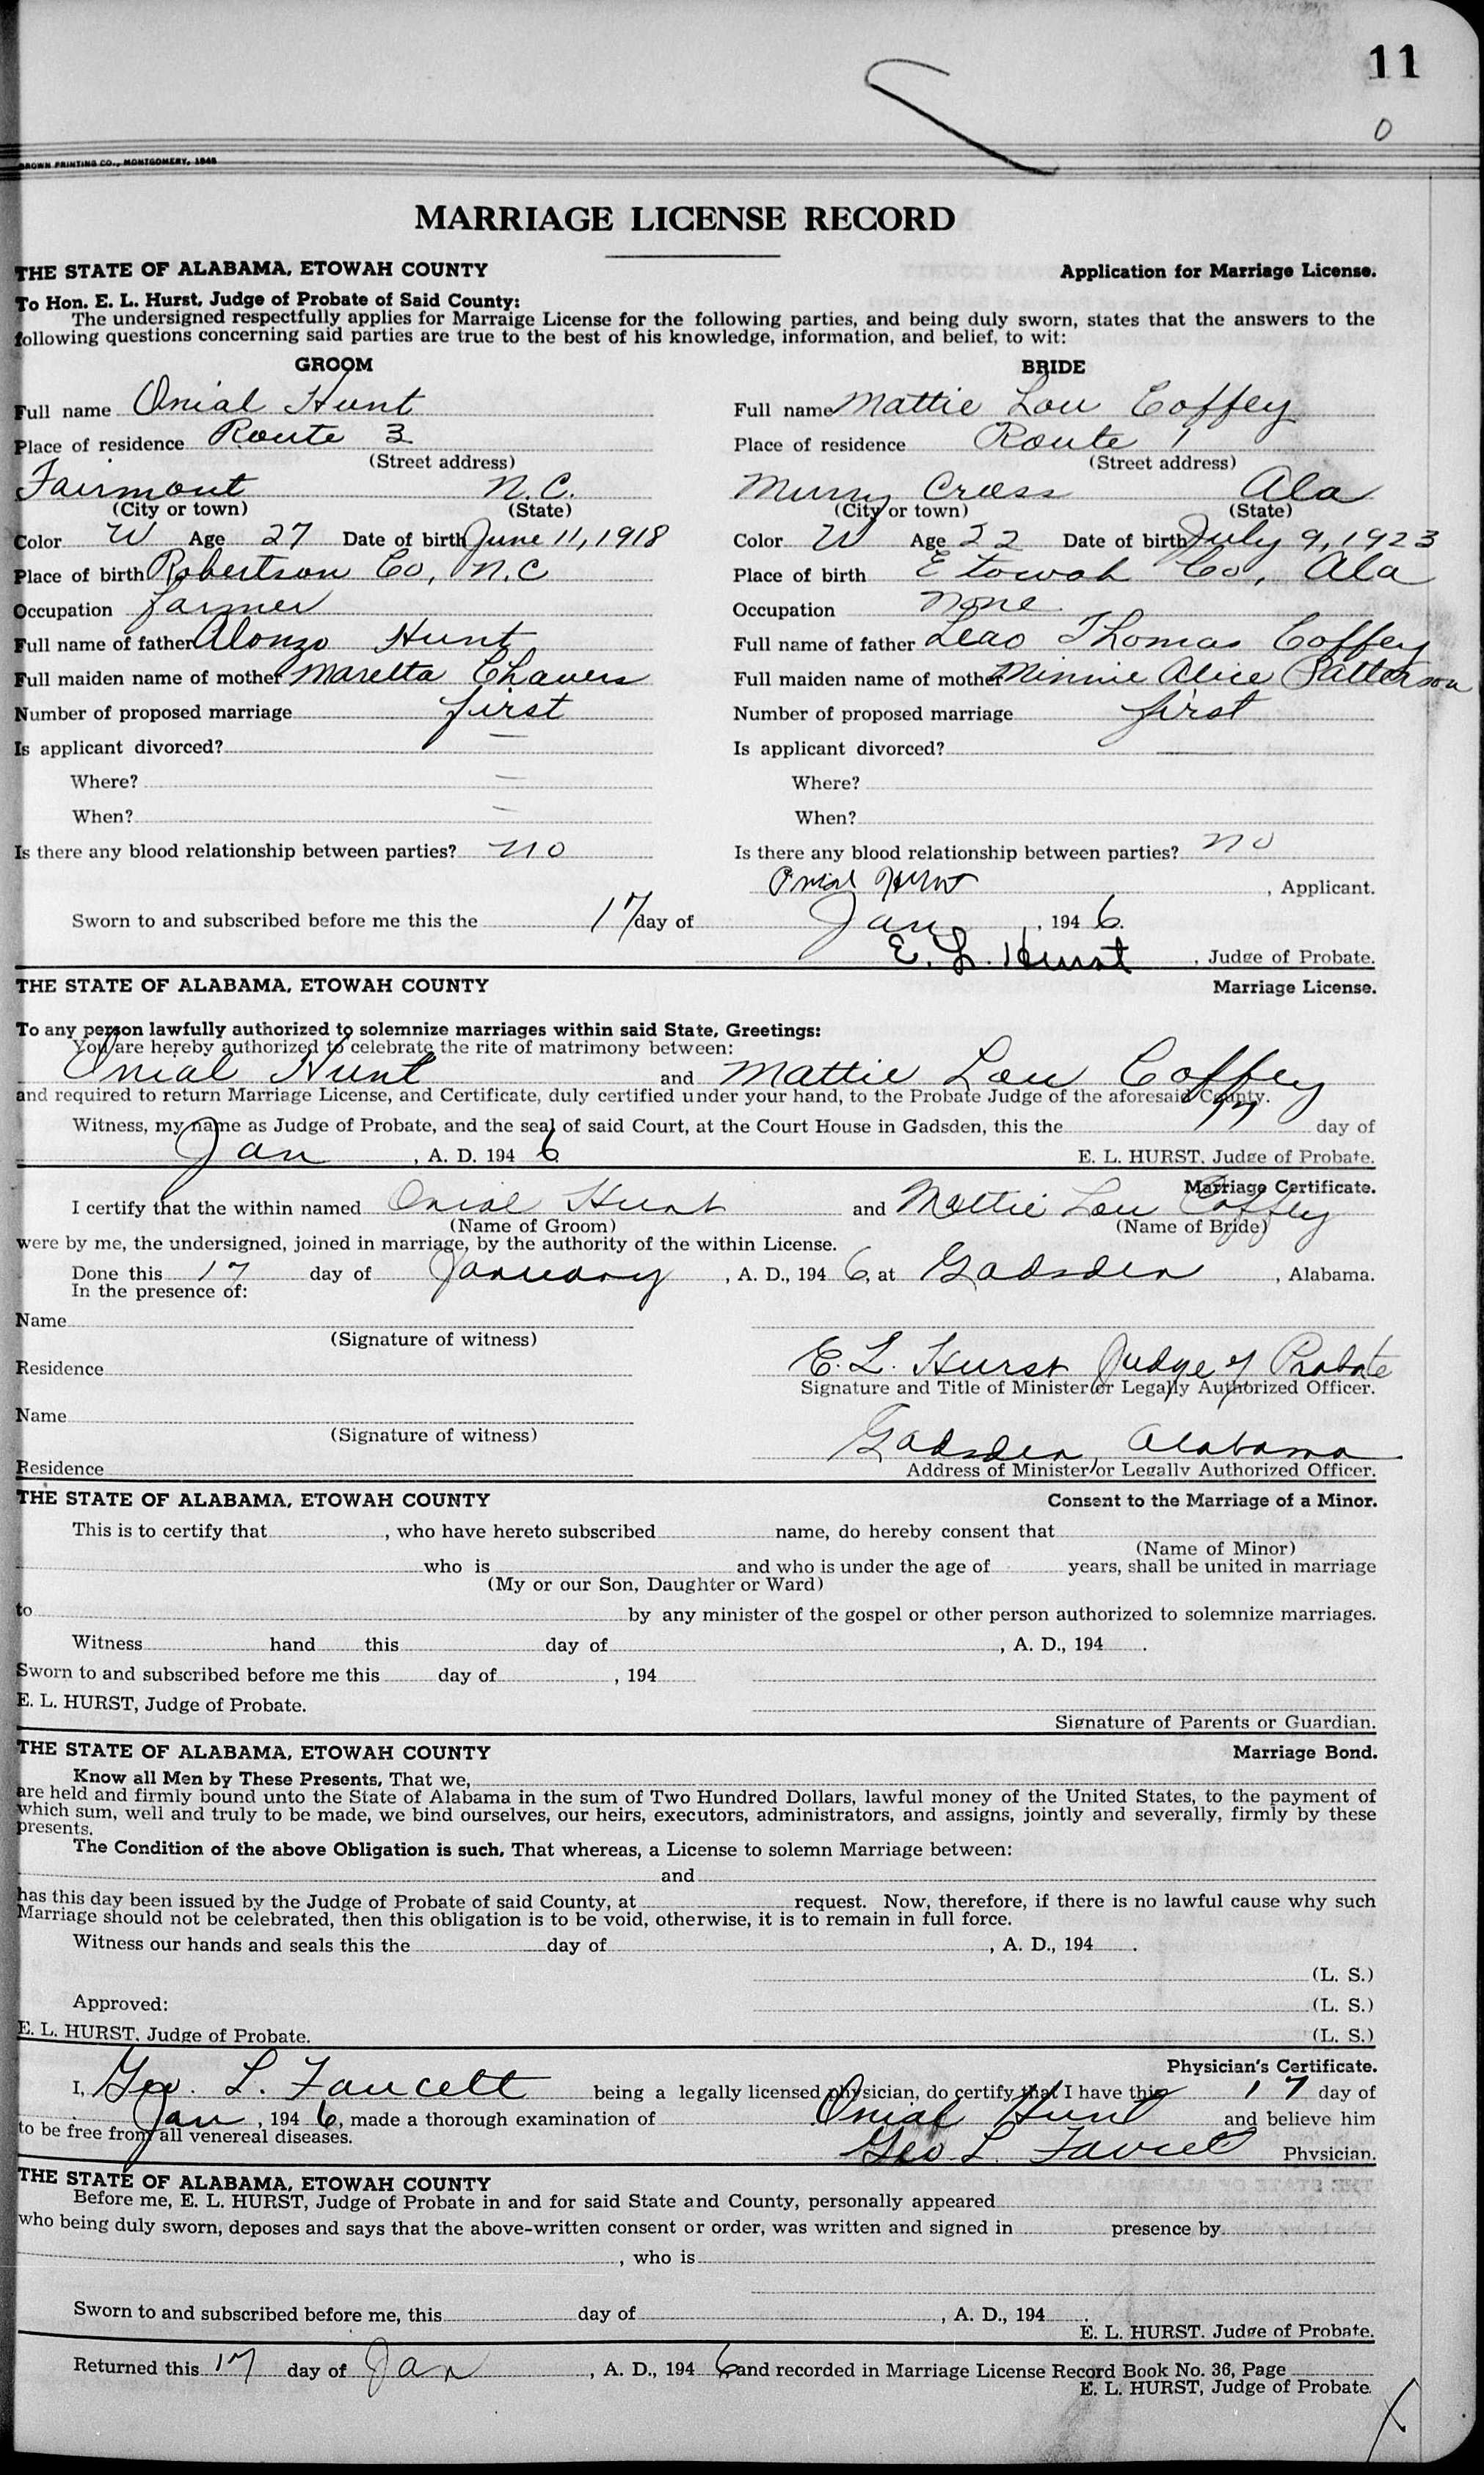 11
0
BROWN PRINTING CO., MONTGOMERY, 1945
MARRIAGE LICENSE RECORD
THE STATE OF ALABAMA, ETOWAH COUNTY Application for Marriage License.
To Hon. E. L. Hurst, Judge of Probate of Said County:
The undersigned respectfully applies for Marraige License for the following parties, and being duly sworn, states that the answers to the
following questions concerning said parties are true to the best of his knowledge, information, and belief, to wit:
GROOM BRIDE
Full name Onial Hunt Full name Mattie Lou Coffey
Place of residence Route 3 Place of residence Route 1
(Street address) (Street address)
Fairmont N.C. Murry Cross Ala
(City or town) (State) (City or town) (State)
Color W Age 27 Date of birth June 11, 1918 Color W Age 22 Date of birth July 9, 1923
Place of birth Robertson Co, N.C Place of birth Etowah Co, Ala
Occupation farmer Occupation none
Full name of father Alonzo Hunt Full name of father Leao Thomas Coffey
Full maiden name of mother Maretta Chavers Full maiden name of mother Minnie Alice Patterson
Number of proposed marriage first Number of proposed marriage first
Is applicant divorced? — Is applicant divorced? —
Where? — Where?
When? — When?
Is there any blood relationship between parties? no Is there any blood relationship between parties? no
Onial Hunt, Applicant.
Sworn to and subscribed before me this the 17 day of Jan, 1946.
E. L. Hurst, Judge of Probate.
THE STATE OF ALABAMA, ETOWAH COUNTY Marriage License.
To any person lawfully authorized to solemnize marriages within said State, Greetings:
You are hereby authorized to celebrate the rite of matrimony between:
Onial Hunt and Mattie Lou Coffey
and required to return Marriage License, and Certificate, duly certified under your hand, to the Probate Judge of the aforesaid County.
Witness, my name as Judge of Probate, and the seal of said Court, at the Court House in Gadsden, this the 17 day of
Jan, A. D. 1946 E. L. HURST, Judge of Probate.
Marriage Certificate.
I certify that the within named Onial Hunt and Mattie Lou Coffey
(Name of Groom) (Name of Bride)
were by me, the undersigned, joined in marriage, by the authority of the within License.
Done this 17 day of January, A. D., 1946, at Gadsden, Alabama.
In the presence of:
Name
(Signature of witness)
Residence E. L. Hurst Judge of Probate
Signature and Title of Minister or Legally Authorized Officer.
Name
(Signature of witness) Gadsden, Alabama
Residence Address of Minister or Legally Authorized Officer.
THE STATE OF ALABAMA, ETOWAH COUNTY Consent to the Marriage of a Minor.
This is to certify that , who have hereto subscribed name, do hereby consent that
(Name of Minor)
who is and who is under the age of years, shall be united in marriage
(My or our Son, Daughter or Ward)
to by any minister of the gospel or other person authorized to solemnize marriages.
Witness hand this day of , A. D., 194 .
Sworn to and subscribed before me this day of , 194
E. L. HURST, Judge of Probate.
Signature of Parents or Guardian.
THE STATE OF ALABAMA, ETOWAH COUNTY Marriage Bond.
Know all Men by These Presents, That we,
are held and firmly bound unto the State of Alabama in the sum of Two Hundred Dollars, lawful money of the United States, to the payment of
which sum, well and truly to be made, we bind ourselves, our heirs, executors, administrators, and assigns, jointly and severally, firmly by these
presents.
The Condition of the above Obligation is such, That whereas, a License to solemn Marriage between:
and
has this day been issued by the Judge of Probate of said County, at request. Now, therefore, if there is no lawful cause why such
Marriage should not be celebrated, then this obligation is to be void, otherwise, it is to remain in full force.
Witness our hands and seals this the day of , A. D., 194 .
(L. S.)
Approved: (L. S.)
E. L. HURST, Judge of Probate. (L. S.)
Physician's Certificate.
I, Geo. L. Faucett being a legally licensed physician, do certify that I have this 17 day of
Jan, 1946, made a thorough examination of Onial Hunt and believe him
to be free from all venereal diseases. Geo. L. Faucett Physician.
THE STATE OF ALABAMA, ETOWAH COUNTY
Before me, E. L. HURST, Judge of Probate in and for said State and County, personally appeared
who being duly sworn, deposes and says that the above-written consent or order, was written and signed in presence by
, who is
Sworn to and subscribed before me, this day of , A. D., 194 .
E. L. HURST, Judge of Probate.
Returned this 17 day of Jan, A. D., 1946, and recorded in Marriage License Record Book No. 36, Page
E. L. HURST, Judge of Probate.